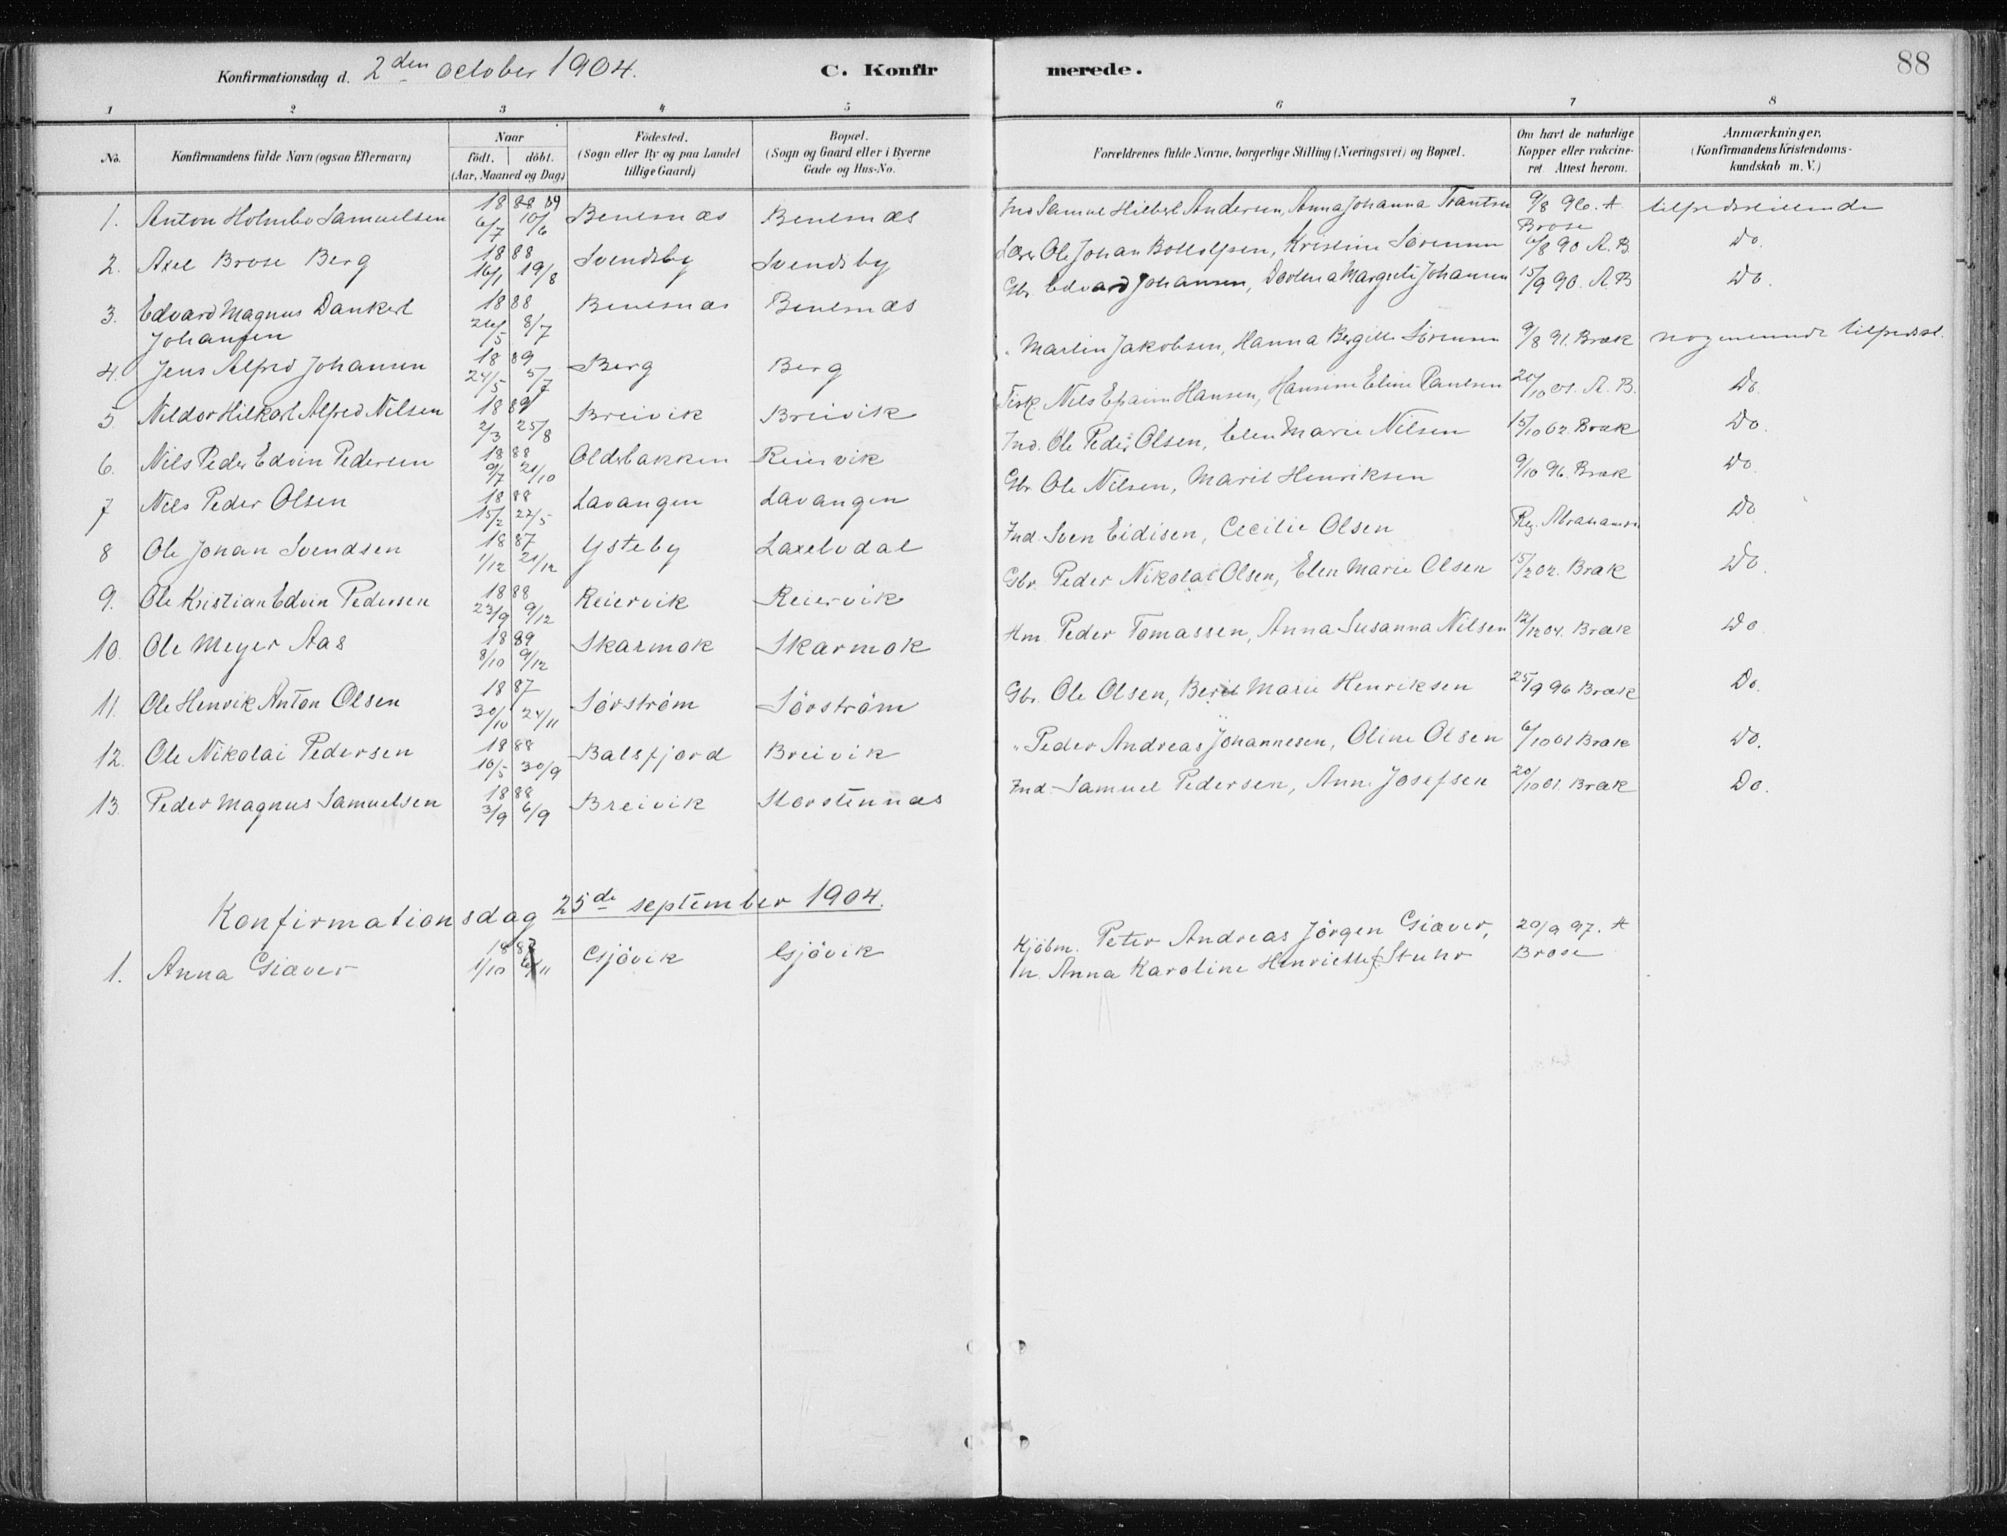 Konfirmationsdag d. 2den October 1904. C. Konfirmerede. 88
1 2 3 4 5 6 7 8
No. Konfirmandens fulde Navn (ogsaa Efternavn) Naar födt. döbt. (Aar, Maaned og Dag) Födested. (Sogn eller By og paa Landet tillige Gaard) Bopæl. (Sogn og Gaard eller i Byerne Gade og Hus-No. Forældrenes fulde Navne, borgerlige Stilling (Næringsvei) og Bopæl. Om havt de naturlige Kopper eller vakcineret Attest herom. Anmærkninger. (Konfirmandens Kristendomskundskab m. V.)
1. Anton Holmbo Samuelsen 18 88 89 6/7 10/6 Benesnæs Benesnæs Ind Samuel Hilbert Andersen, Anna Johanna Trantsen 9/8 96. A Brose tilfredsstillende
2. Axel Brose Berg 18 88 16/1 19/8 Svendsby Svendsby Lærer Ole Johan Bottolfsen, Kristine Sørensen 6/8 90 A. B. Do.
3. Edvard Magnus Dankert Johansen 18 88 26/5 8/7 Benesnæs Benesnæs Gbr Edvard Johansen, Dortea Margrete Johansen 15/9 90. A. B Do.
4. Jens Alfred Johansen 18 89 24/5 5/7 Berg Berg " Martin Jakobsen, Hanna Bergitte Sørensen 9/8 91. Bræk nogenlunde tilfredsst.
5. Nildor Hilkart Alfred Nilsen 18 89 2/3 25/8 Breivik Breivik Fisk. Nils Efraim Hansen, Hansine Eline Paulsen 20/10 01. A. B. Do.
6. Nils Peder Edvin Pedersen 18 88 9/7 21/10 Oldebakken Reiervik Ind. Ole Peder Olsen, Elen Marie Nilsen 15/10 02. Bræk Do.
7 Nils Peder Olsen 18 88 15/2 22/5 Lavangen Lavangen Gbr Ole Nilsen, Marit Henriksen 9/10 96. Bræk Do.
8 Ole Johan Svendsen 18 87 1/12 21/12 Ysteby Laxelvdal Ind. Sven Eidisen, Cecilie Olsen Rej. Abrahamsen Do
9. Ole Kristian Edvin Pedersen 18 88 23/9 9/12 Reiervik Reiervik Gbr. Peder Nikolai Olsen, Elen Marie Olsen 15/2 02. Bræk Do.
10. Ole Meyer Aas 18 89 8/10 9/12 Skarmok Skarmok Hm. Peder Tomassen, Anna Susanna Nilsen 12/12 04. Bræk Do
11. Ole Henrik Anton Olsen 18 87 30/10 24/11 Sørstrøm Sørstrøm Gbr. Ole Olsen, Berit Marie Henriksen 25/9 96 Bræk Do.
12. Ole Nikolai Pedersen 18 88 16/5 30/9 Balsfjord Breivik " Peder Andreas Johannesen, Oline Olsen 6/10 01 Bræk Do.
13. Peder Magnus Samuelsen 18 88 3/9 6/9 Breivik Storstennæs Ind. Samuel Pedersen, Anne Josefsen 20/10 01. Bræk Do.
Konfirmationsdag 25de september 1904.
1. Anna Giæver 18 87 1/10 6/11 Gjövik Gjövik Kjöbm. Peter Andreas Jörgen Giæver, 20/9 97. A
n. Anna Karoline Henriette f. Stuhr Brose